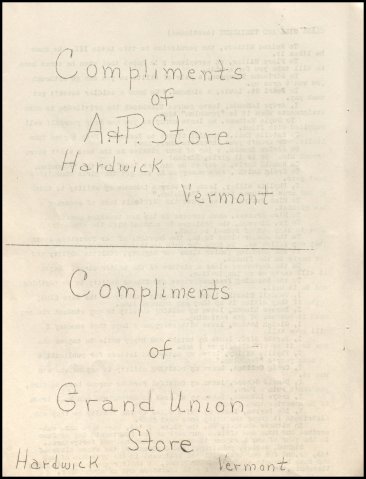 Compliments
of
A.&P. Store
Hardwick
Vermont
Compliments
of
Grand Union
Store
Hardwick Vermont